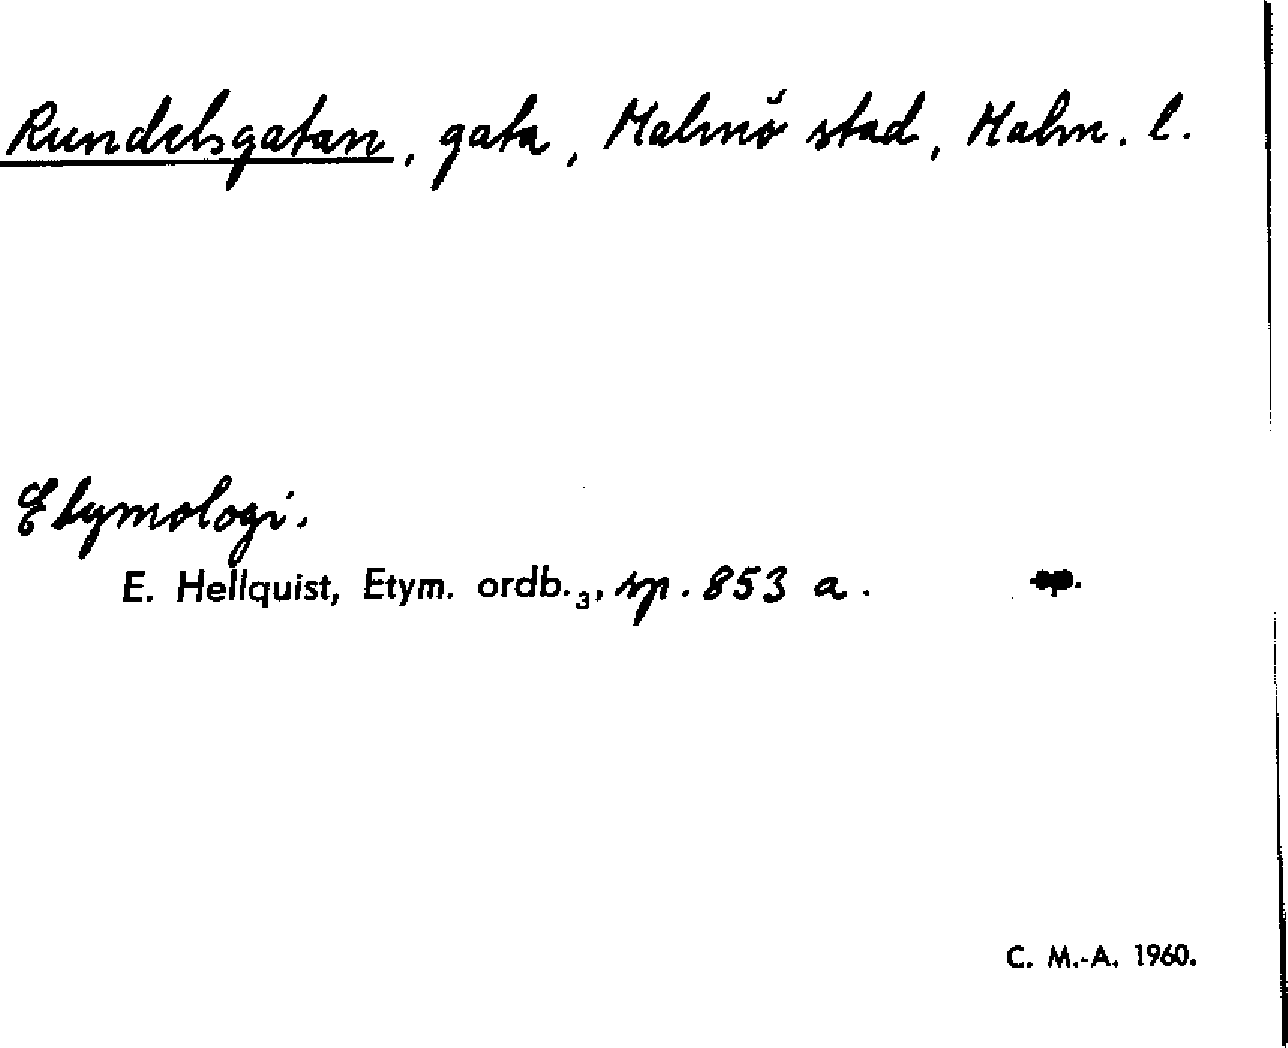 Rundelsgatan, gata, Malmö stad, Malm. l.
Etymologi.
E. Hellquist, Etym. ordb.₃, sp. 853 a.
C. M.-A. 1960.